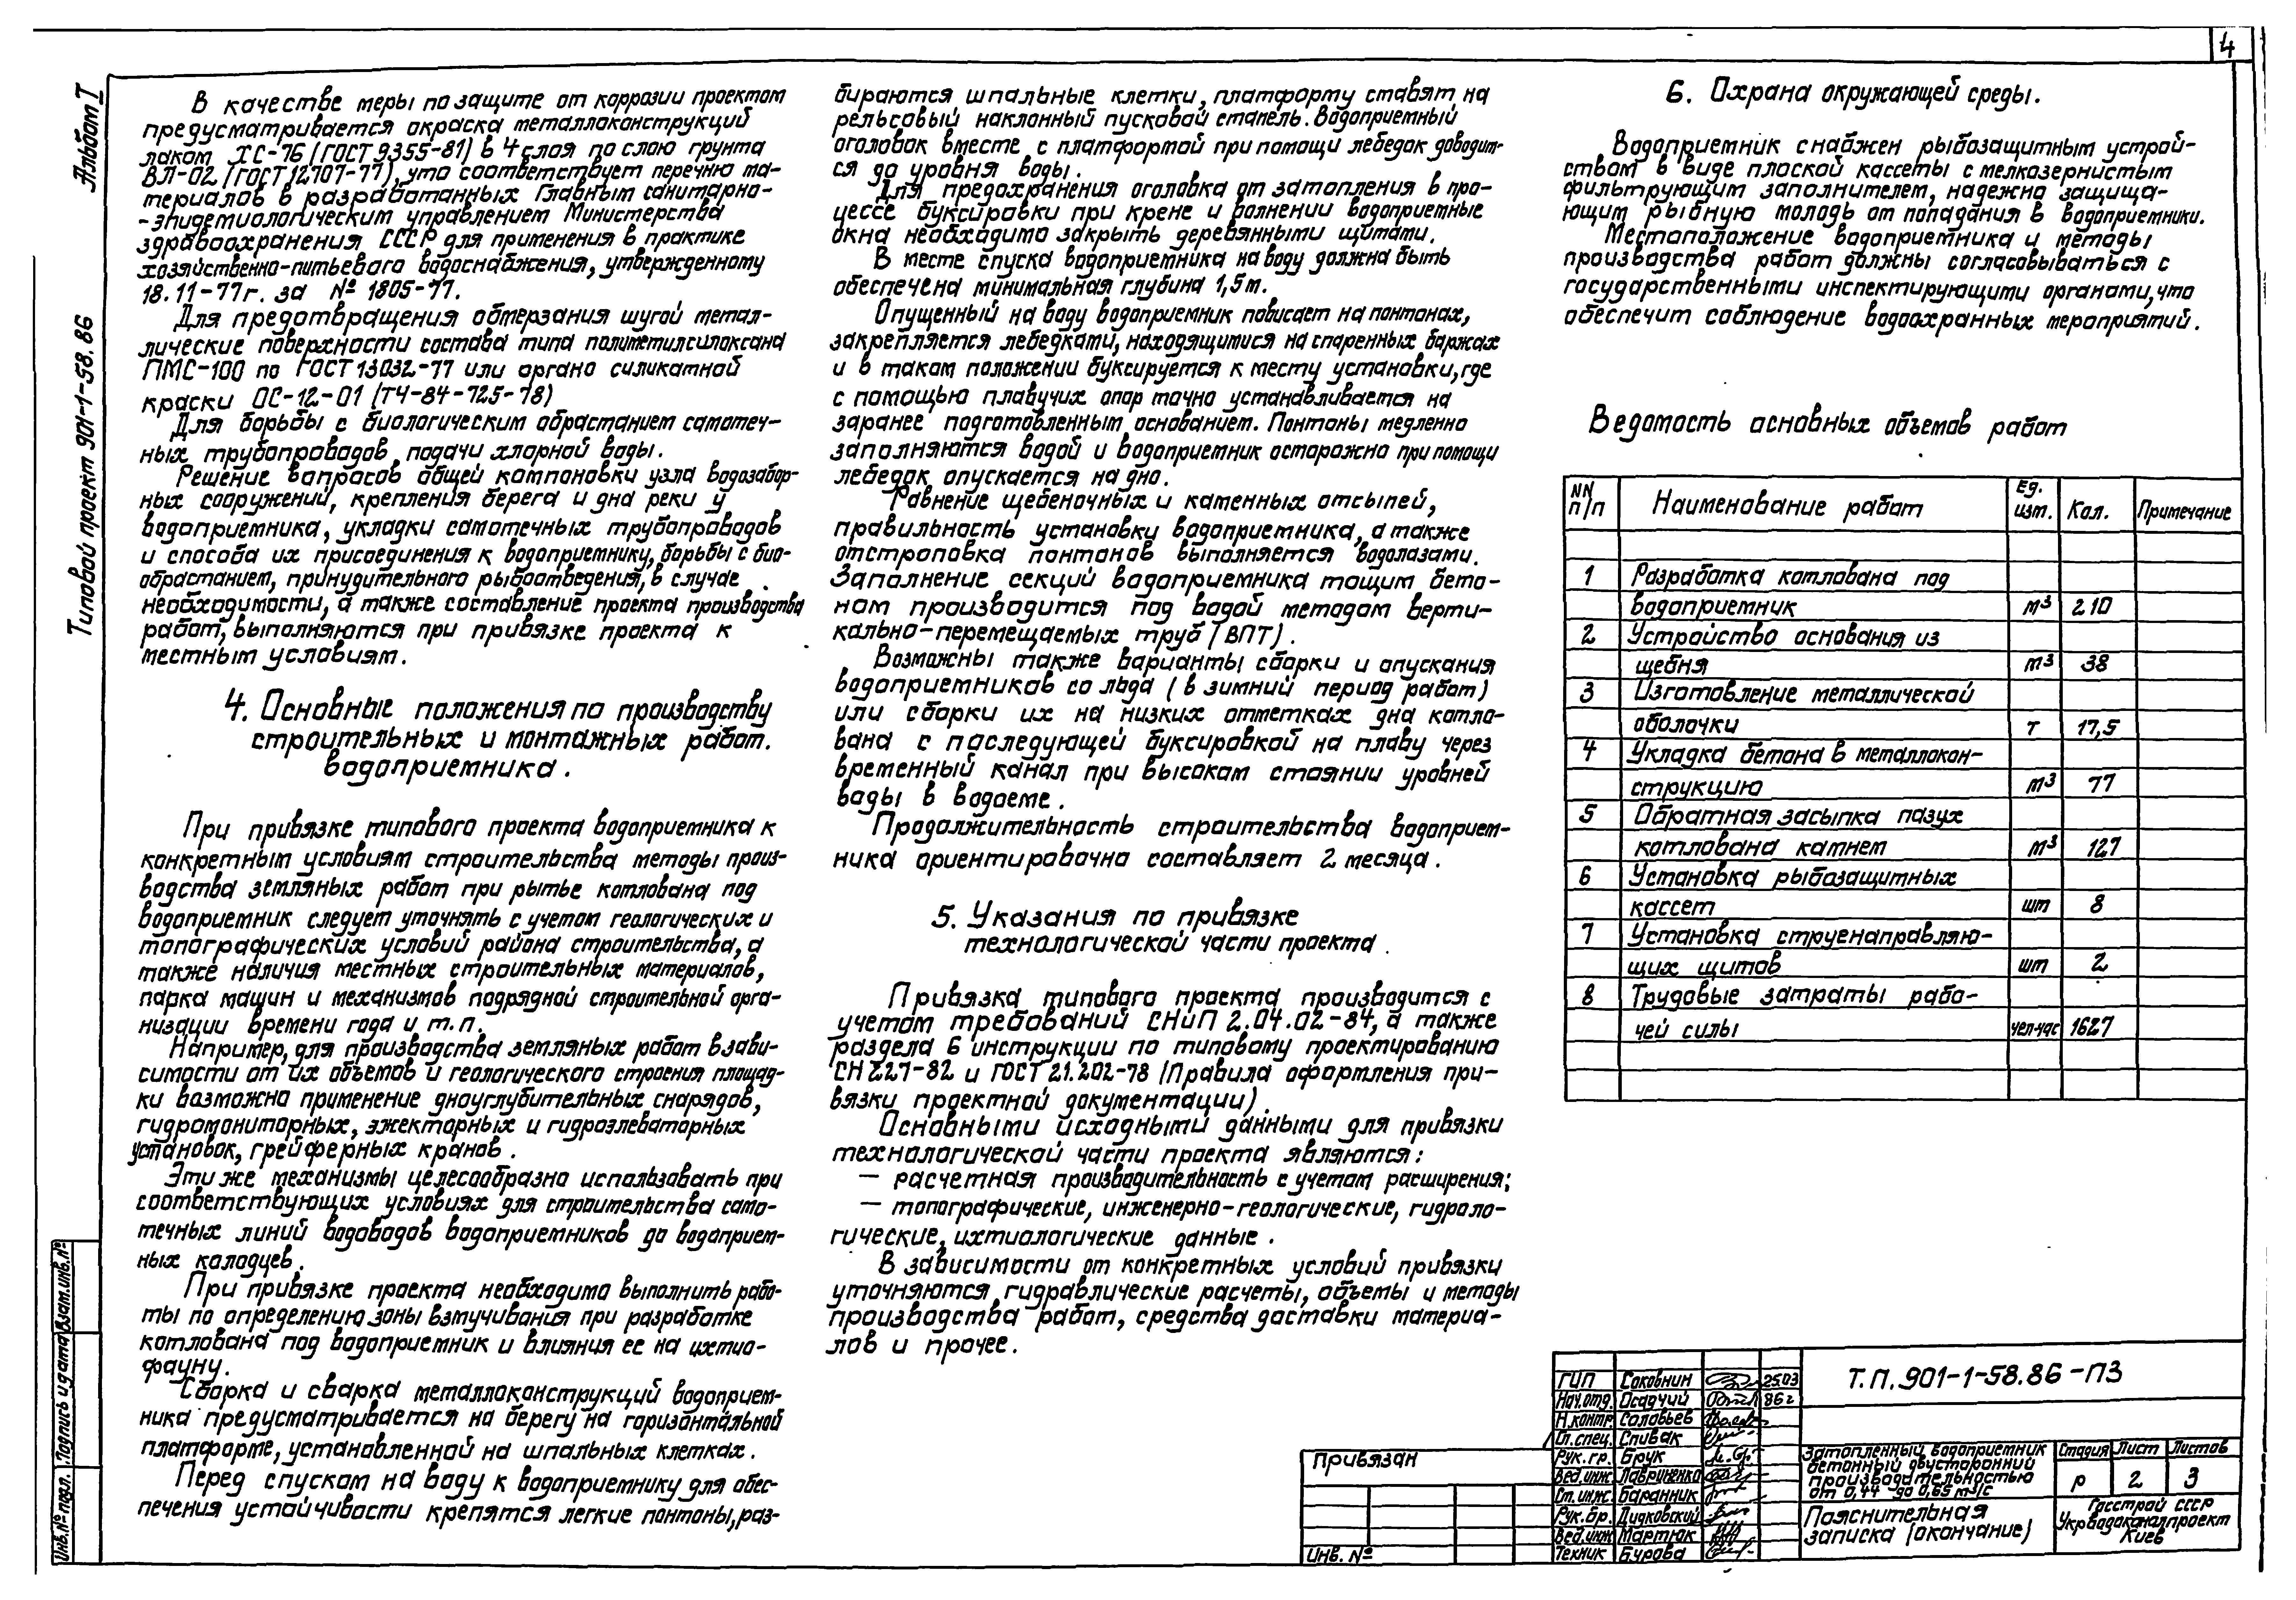 4
Альбом I
Типовой проект 901-1-58.86
В качестве меры по защите от коррозии проектом
предусматривается окраска металлоконструкций
лаком ХС-76 (ГОСТ 9355-81) в 4 слоя по слою грунта
ВЛ-02 (ГОСТ 12707-77), что соответствует перечню ма-
териалов в разработанных Главным санитарно-
-эпидемиологическим управлением Министерства
здравоохранения СССР для применения в практике
хозяйственно-питьевого водоснабжения, утвержденному
18.11-77г. за № 1805-77.
Для предотвращения обмерзания шугой метал-
лические поверхности состава типа полиметилсилоксана
ПМС-100 по ГОСТ 13032-77 или органо силикатной
краски ОС-12-01 (ТЧ-84-725-78)
Для борьбы с биологическим обрастанием самотеч-
ных трубопроводов подачи хлорной воды.
Решение вопросов общей компоновки узла водозабор-
ных сооружений, крепления берега и дна реки у
водоприемника, укладки самотечных трубопроводов
и способа их присоединения к водоприемнику, борьбы с био-
обрастанием, принудительного рыбоотведения, в случае
необходимости, а также составление проекта производства
работ, выполняются при привязке проекта к
местным условиям.
4. Основные положения по производству
строительных и монтажных работ.
водоприемника.
При привязке типового проекта водоприемника к
конкретным условиям строительства методы произ-
водства земляных работ при рытье котлована под
водоприемник следует уточнять с учетом геологических и
топографических условий района строительства, а
также наличия местных строительных материалов,
парка машин и механизмов подрядной строительной орга-
низации времени года и т.п.
Например, для производства земляных работ в зави-
симости от их объемов и геологического строения площад-
ки возможно применение дноуглубительных снарядов,
гидромониторных, эжекторных и гидроэлеваторных
установок, грейферных кранов.
Эти же механизмы целесообразно использовать при
соответствующих условиях для строительства само-
течных линий водоводов водоприемников до водоприем-
ных колодцев.
При привязке проекта необходимо выполнить рабо-
ты по определению зоны взмучивания при разработке
котлована под водоприемник и влияния ее на ихтио-
фауну.
Сборка и сварка металлоконструкций водоприем-
ника предусматривается на берегу на горизонтальной
платформе, установленной на шпальных клетках.
Перед спуском на воду к водоприемнику для обес-
печения устойчивости крепятся легкие понтоны, раз-
бираются шпальные клетки, платформу ставят на
рельсовый наклонный пусковой стапель. Водоприемный
оголовок вместе с платформой при помощи лебедок доводит-
ся до уровня воды.
Для предохранения оголовка от затопления в про-
цессе буксировки при крене и волнении водоприемные
окна необходимо закрыть деревянными щитами.
В месте спуска водоприемника на воду должна быть
обеспечена минимальная глубина 1,5м.
Опущенный на воду водоприемник повисает на понтонах,
закрепляется лебедками, находящимися на спаренных баржах
и в таком положении буксируется к месту установки, где
с помощью плавучих опор точно устанавливается на
заранее подготовленным основанием. Понтоны медленно
заполняются водой и водоприемник осторожно при помощи
лебедок опускается на дно.
Равнение щебеночных и каменных отсыпей,
правильность установку водоприемника, а также
отстроповка понтонов выполняется водолазами.
Заполнение секций водоприемника тощим бето-
ном производится под водой методом верти-
кально-перемещаемых труб (ВПТ).
Возможны также варианты сборки и опускания
водоприемников со льда (в зимний период работ)
или сборки их на низких отметках дна котло-
вана с последующей буксировкой на плаву через
временный канал при высоком стоянии уровней
воды в водоеме.
Продолжительность строительства водоприем-
ника ориентировочно составляет 2 месяца.
5. Указания по привязке
технологической части проекта.
Привязка типового проекта производится с
учетом требований СНиП 2.04.02-84, а также
раздела 6 инструкции по типовому проектированию
СН 227-82 и ГОСТ 21.202-78 (Правила оформления при-
вязки проектной документации).
Основными исходными данными для привязки
технологической части проекта являются:
— расчетная производительность с учетом расширения;
— топографические, инженерно-геологические, гидроло-
гические, ихтиологические данные.
В зависимости от конкретных условий привязки
уточняются гидравлические расчеты, объемы и методы
производства работ, средства доставки материа-
лов и прочее.
6. Охрана окружающей среды.
Водоприемник снабжен рыбозащитным устрой-
ством в виде плоской кассеты с мелкозернистым
фильтрующим заполнителем, надежно защища-
ющим рыбную молодь от попадания в водоприемники.
Местоположение водоприемника и методы
производства работ должны согласовываться с
государственными инспектирующими органами, что
обеспечит соблюдение водоохранных мероприятий.
Ведомость основных объемов работ
NN п/п Наименование работ Ед. изм. Кол. Примечание
1 Разработка котлована под
водоприемник м³ 210
2 Устройство основания из
щебня м³ 38
3 Изготовление металлической
оболочки т 17,5
4 Укладка бетона в металлокон-
струкцию м³ 77
5 Обратная засыпка пазух
котлована камнем м³ 127
6 Установка рыбозащитных
кассет шт 8
7 Установка струенаправляю-
щих щитов шт 2
8 Трудовые затраты рабо-
чей силы чел-час 1627
Привязан
Инв. №
ГИП Соковнин 25.03
Нач.отд. Осадчий 86г
Н.контр. Соловьев
Гл.спец. Спивак
Рук.гр. Брук
Вед.инж. Лавриненко
Ст.инж. Баранник
Рук.бр. Дидковский
Вед.инж Мартюк
Техник Бурова
Т.П. 901-1-58.86 -ПЗ
Затопленный водоприемник
бетонный двусторонний
производительностью
от 0,44 до 0,65 м³/с
Стадия Лист Листов
Р 2 3
Пояснительная
записка (окончание)
Госстрой СССР
Укрводоканалпроект
Киев
Взам.инв.№
Подпись и дата
Инв.№ подл.